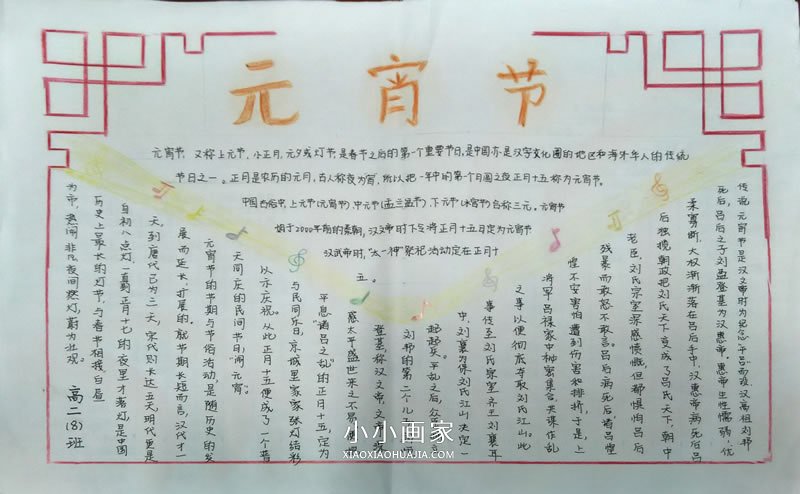 元宵节
元宵节,又称上元节,小正月,元夕或灯节,是春节之后的第一个重要节日,是中国亦是汉字文化圈的地区和海外华人的传统
节日之一。正月是农历的元月,古人称夜为宵,所以把一年中的第一个月圆之夜正月十五称为元宵节。
中国古俗中,上元节(元宵节)中元节(盂兰盆节)下元节(水官节)合称三元。元宵节
始于2000年前的秦朝,汉文帝时下令将正月十五日定为元宵节
汉武帝时,"太一神"祭祀活动定在正月十
五。
传说元宵节是汉文帝时为纪念平吕而设 汉高祖刘邦
死后,吕后之子刘盈登基为汉惠帝,惠帝生性懦弱,优
柔寡断,大权渐渐落在吕后手中,汉惠帝病死后吕
后独揽朝政把刘氏天下变成了吕氏天下,朝中
老臣,刘氏宗室深感愤慨,但都惧怕吕后
残暴而敢怒不敢言,吕后病死后诸吕惶
惶不安害怕遭到伤害和排挤,于是上
将军吕禄家中秘密集合,共谋作乱
之事以便彻底夺取刘氏江山,此
事传至刘氏宗室齐王刘襄耳
中,刘襄为保刘氏江山决定
起兵,平乱之后,众
刘邦的第二个儿
登基称汉文帝,文帝
感太平盛世来之不易
平息"诸吕之乱"的正月十五,定为
与民同乐日,京城里家家张灯结彩
以示庆祝。从此正月十五便成了一个普
天同庆的民间节日"闹元宵"。
元宵节的节期与节俗活动,是随历史的发
展而延长、扩展的。就节期长短而言,汉代才一
天,到唐代已为三天,宋代则长达五天,明代更是
自初八点灯,一直到正月十七的夜里才落灯是中国
历史上最长的灯节,与春节相接,白昼
为市,热闹非凡夜间燃灯,蔚为壮观。
高二(8)班
小小画家
XIAOXIAOHUAJIA.COM